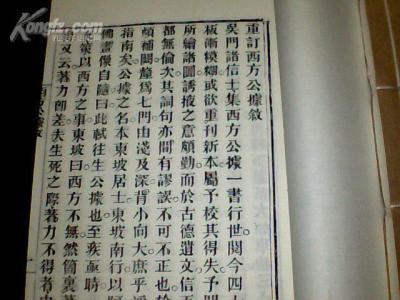 重訂西方公據敘
吳門諸信士集西方公據一書行世閱今四
板漸糢糊或欲重刊新本屬予校其得失予閱
所繪諸圖誘掖之意頗勤而於古德遺文信
都無倫次其詞句亦閒有謬誤不可不正也於
頗補闕釐爲七門由淺及深背小向大庶乎
指南矣公據之名本東坡居士東坡南行以阿
佛畫像自隨曰此軾往生公據也至疾亟時
策以西方之事東坡曰西方不無然箇裏著
又云著力卽差夫生死之際著力不得者
西方公據敘
Kongfz.com